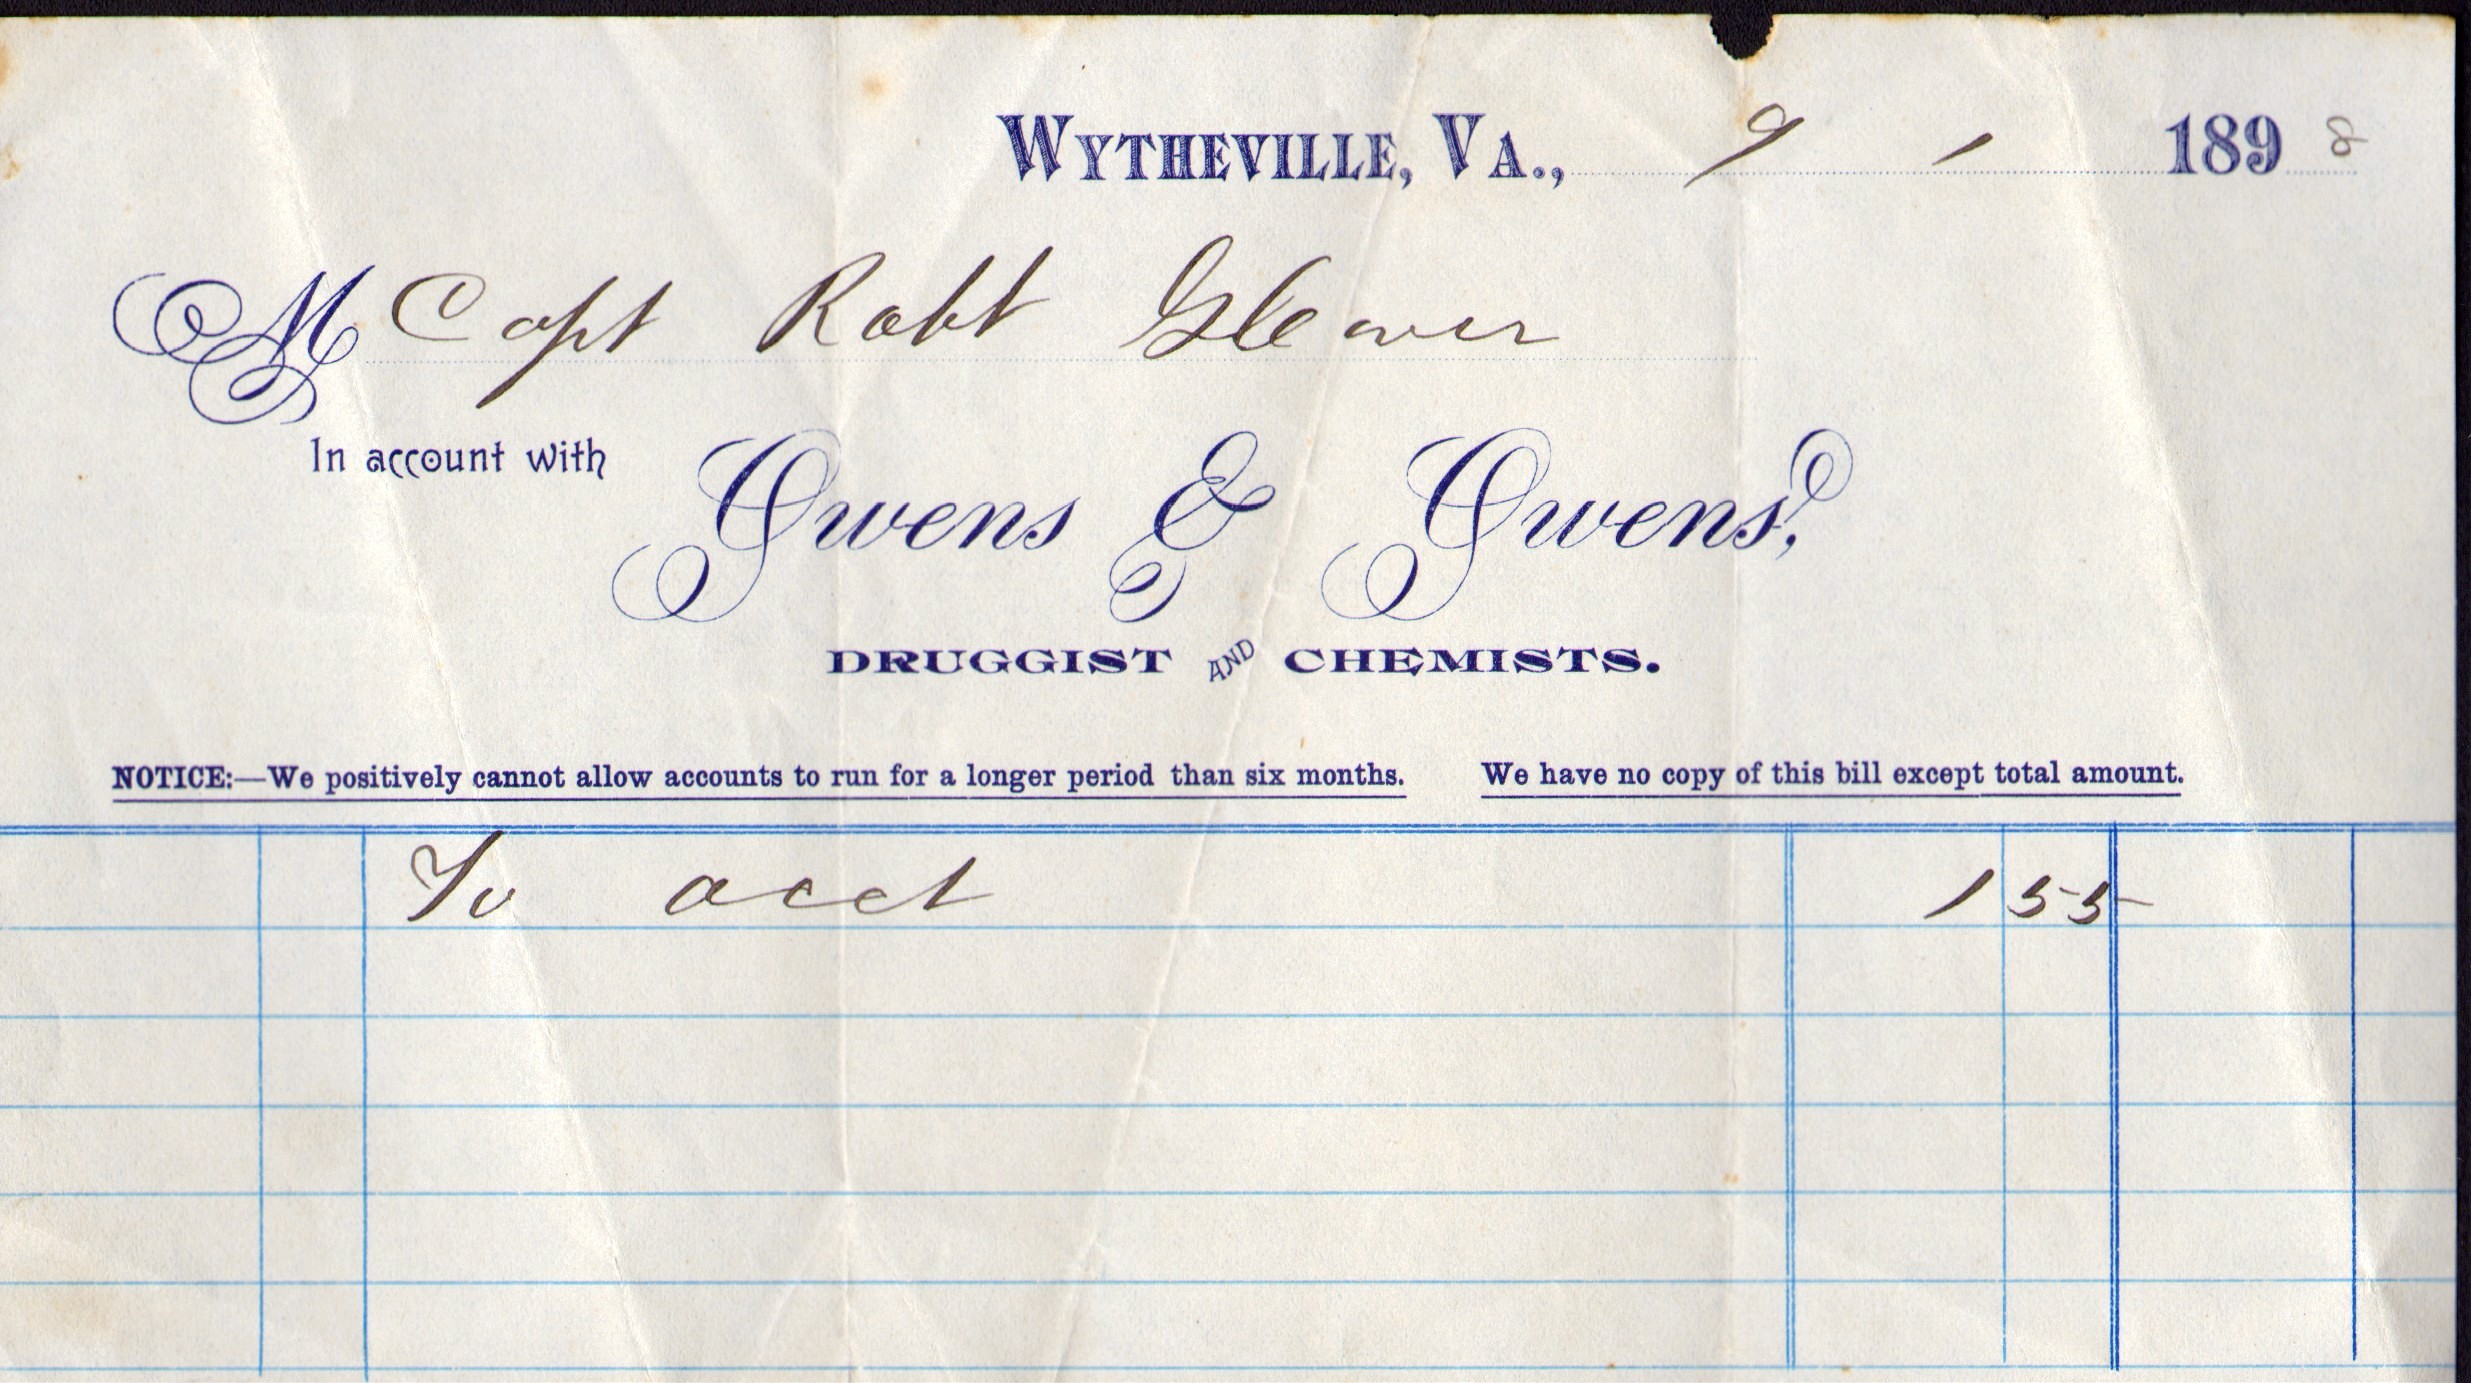 WYTHEVILLE, VA., 9 1 1898
M Capt Robt Gleaver
In account with
Owens & Owens,
DRUGGIST AND CHEMISTS.
NOTICE:—We positively cannot allow accounts to run for a longer period than six months. We have no copy of this bill except total amount.
To acct 1 55